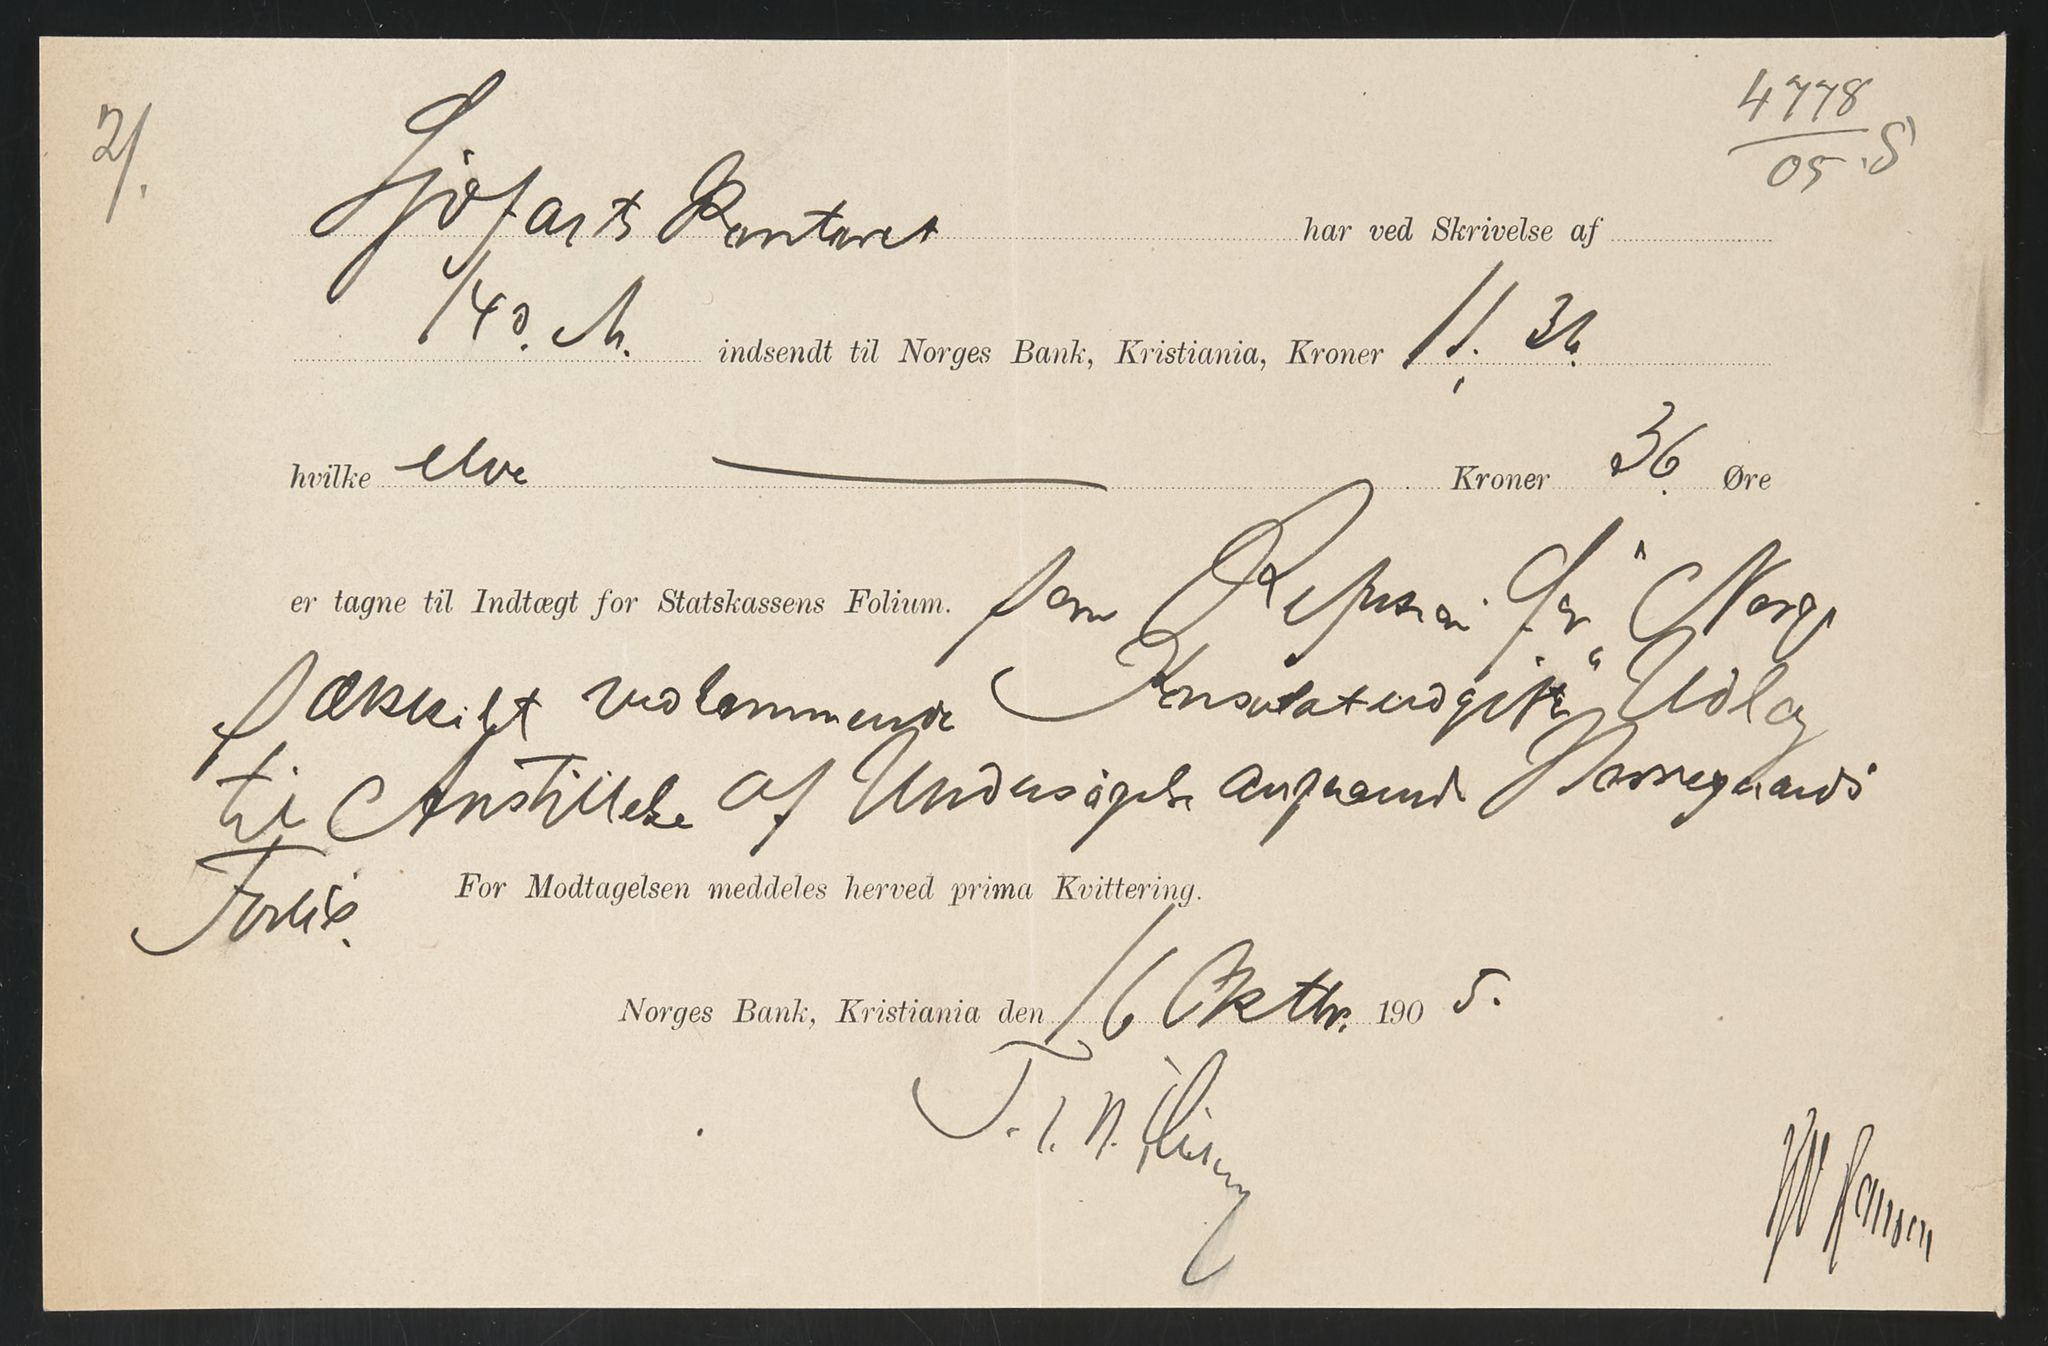 2/.
4778
05 .S
Sjöfarts Kontoret har ved Skrivelse af
14/9 d. M. indsendt til Norges Bank, Kristiania, Kroner 11. 36.
hvilke elve Kroner 36 Øre
er tagne til Indtægt for Statskassens Folium. som Refusion for "Norge
særskilt vedkommende Konsulatudgifter" Udlæg
til Anstillelse af Undersögelse angaaende Norregaards
Forlis. For Modtagelsen meddeles herved prima Kvittering.
Norges Bank, Kristiania den 16 Oktbr. 190 5.
T. I. N.
Hansen